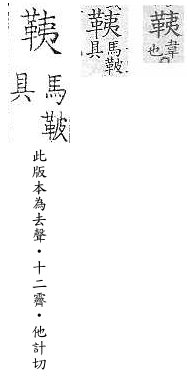 䩟
馬鞁
具
此版本為去聲·十二霽·他計切
䩟
馬鞁
具
䩟
韋
也